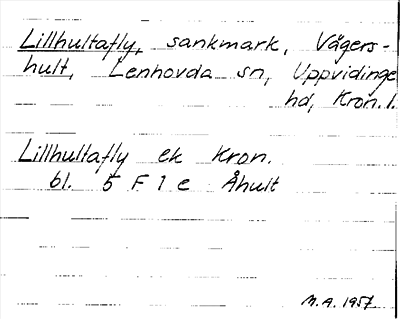 Lillhultafly, sankmark, Vägers-
hult, Lenhovda sn, Uppvidinge
hd, Kron. l.
Lillhultafly ek Kron.
bl. 5 F 1 e Åhult
M.A. 1957